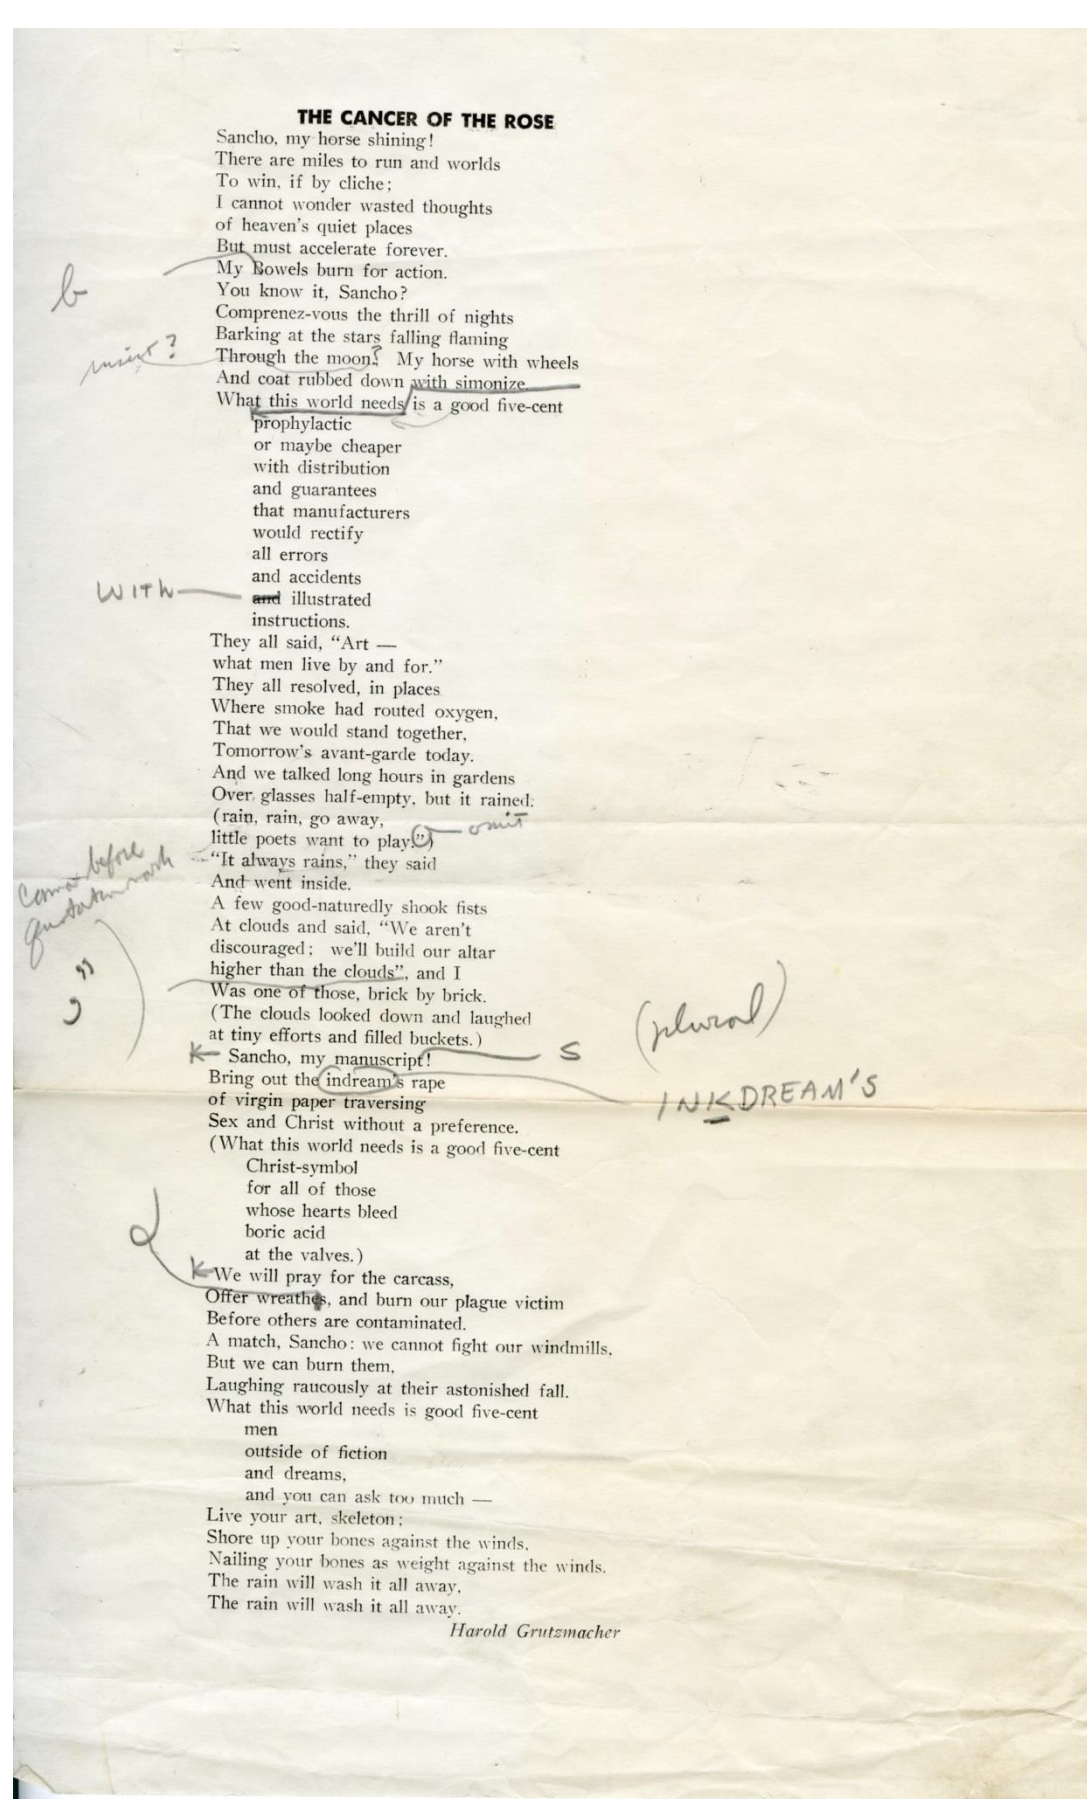 THE CANCER OF THE ROSE
Sancho, my horse shining!
There are miles to run and worlds
To win, if by cliche;
I cannot wonder wasted thoughts
of heaven's quiet places
But must accelerate forever.
My Bowels burn for action.
b
You know it, Sancho?
Comprenez-vous the thrill of nights
Barking at the stars falling flaming
insert?
Through the moon? My horse with wheels
And coat rubbed down with simonize.
What this world needs/is a good five-cent
prophylactic
or maybe cheaper
with distribution
and guarantees
that manufacturers
would rectify
all errors
and accidents
WITH
and illustrated
instructions.
They all said, “Art —
what men live by and for.”
They all resolved, in places
Where smoke had routed oxygen,
That we would stand together,
Tomorrow's avant-garde today.
And we talked long hours in gardens
Over glasses half-empty, but it rained.
(rain, rain, go away,
omit
little poets want to play.”)
“It always rains,” they said
comma before
quotation mark
And went inside.
A few good-naturedly shook fists
At clouds and said, “We aren't
discouraged; we'll build our altar
,”
higher than the clouds”, and I
Was one of those, brick by brick.
(The clouds looked down and laughed
at tiny efforts and filled buckets.)
Sancho, my manuscript!
s (plural)
Bring out the indream's rape
INKDREAM'S
of virgin paper traversing
Sex and Christ without a preference.
(What this world needs is a good five-cent
Christ-symbol
for all of those
whose hearts bleed
boric acid
at the valves.)
We will pray for the carcass,
Offer wreathes, and burn our plague victim
Before others are contaminated.
A match, Sancho: we cannot fight our windmills,
But we can burn them,
Laughing raucously at their astonished fall.
What this world needs is good five-cent
men
outside of fiction
and dreams,
and you can ask too much —
Live your art, skeleton;
Shore up your bones against the winds,
Nailing your bones as weight against the winds.
The rain will wash it all away,
The rain will wash it all away.
Harold Grutzmacher